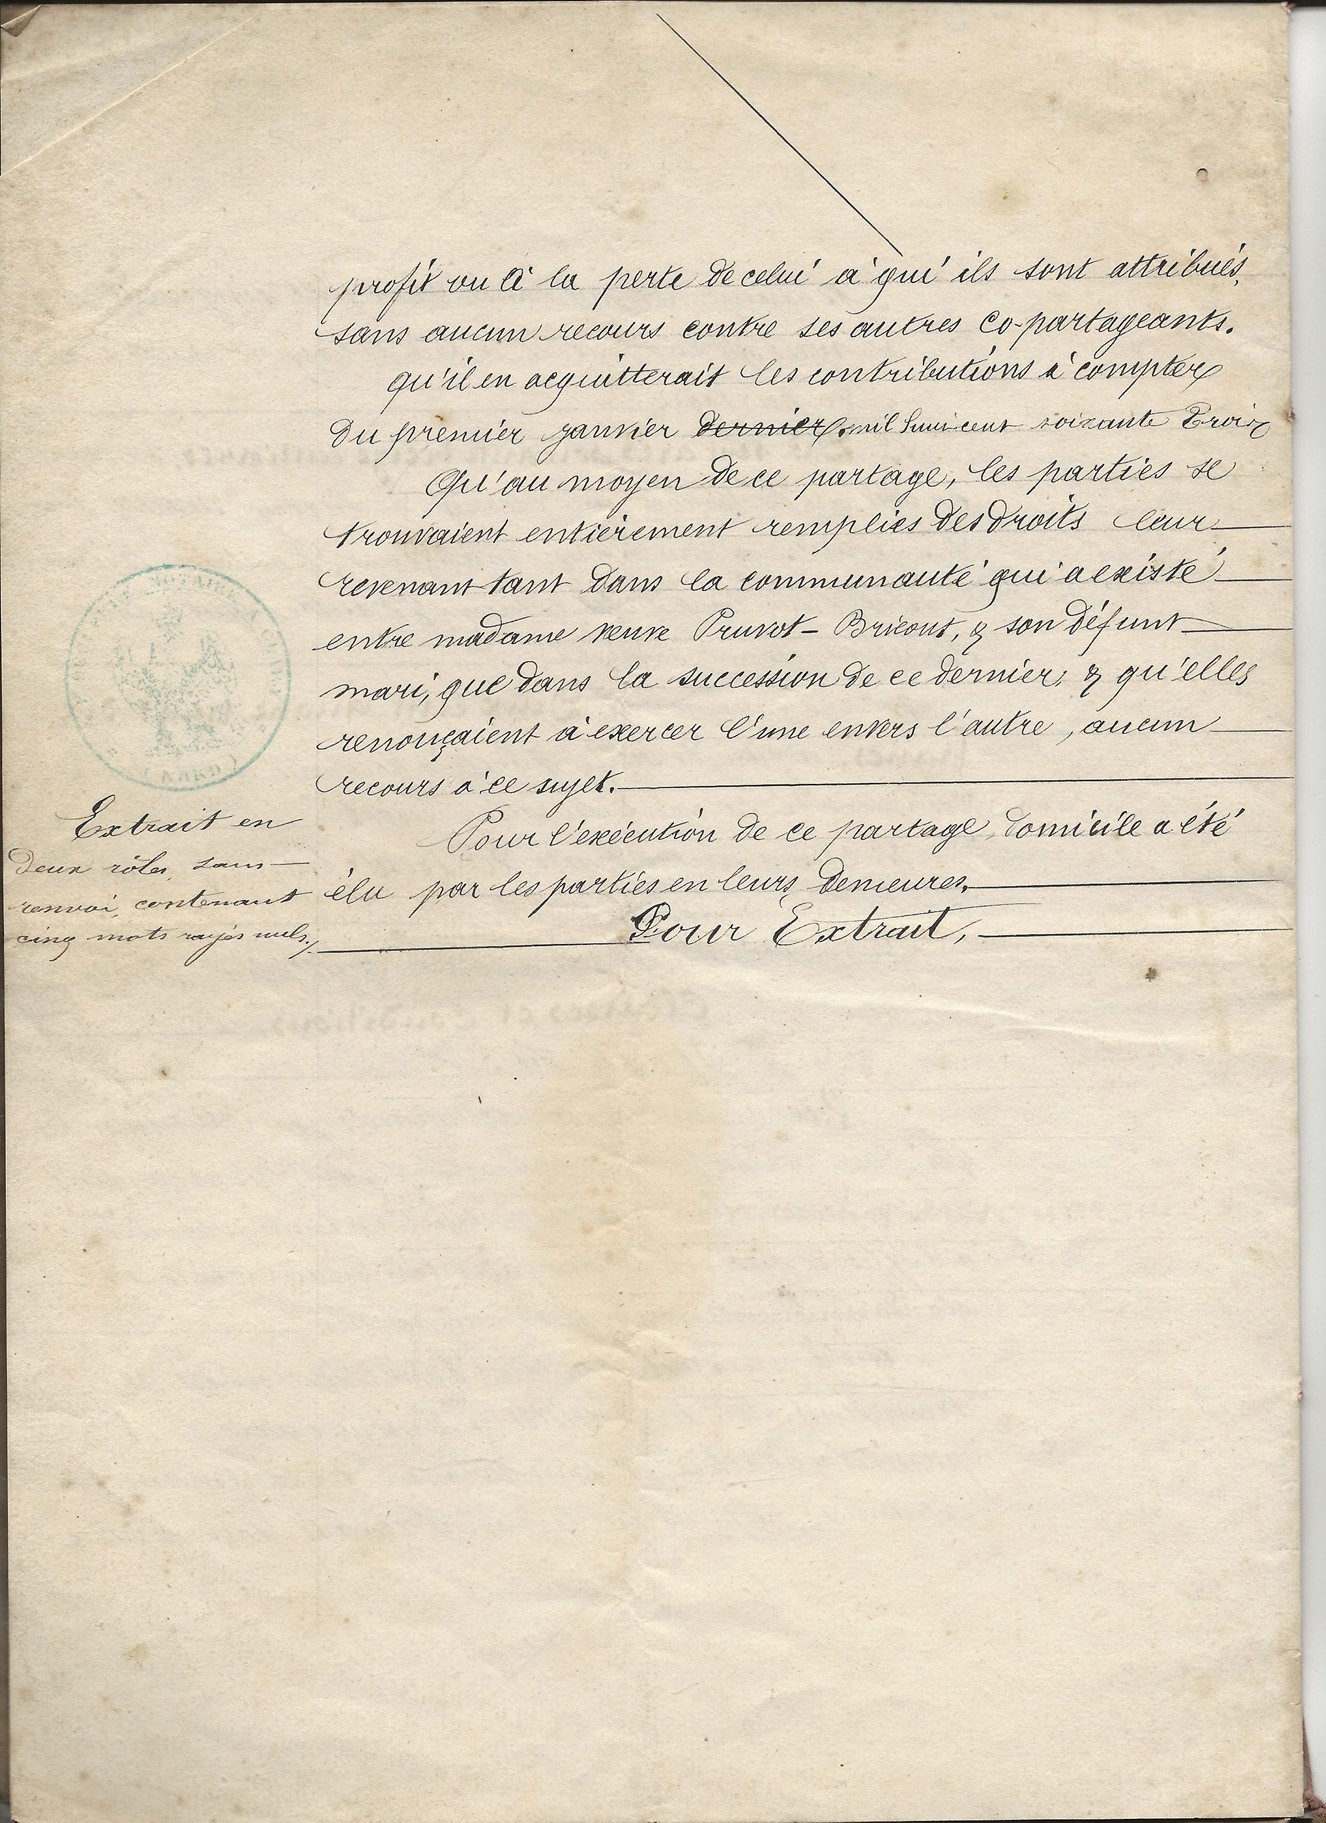 profit ou à la perte de celui à qui ils sont attribués,
sans aucun recours contre ses autres co-partageants.
qu'il en acquitterait les contributions à compter
du premier janvier dernier mil huit cent soixante Trois
Qu'au moyen de ce partage, les parties se
trouvaient entièrement remplies des droits leur
revenant tant dans la communauté qui a existé
entre madame veuve Pruvot - Bricout, & son défunt
mari, que dans la succession de ce dernier, & qu'elles
renonçaient à exercer l'une envers l'autre, aucun
recours à ce sujet.
Pour l'exécution de ce partage, domicile a été
élu par les parties en leurs demeures.
Pour Extrait,
Extrait en
deux rôles, sans
renvoi, contenant
cinq mots rayés nuls./.
NOTAIRE
(NORD)